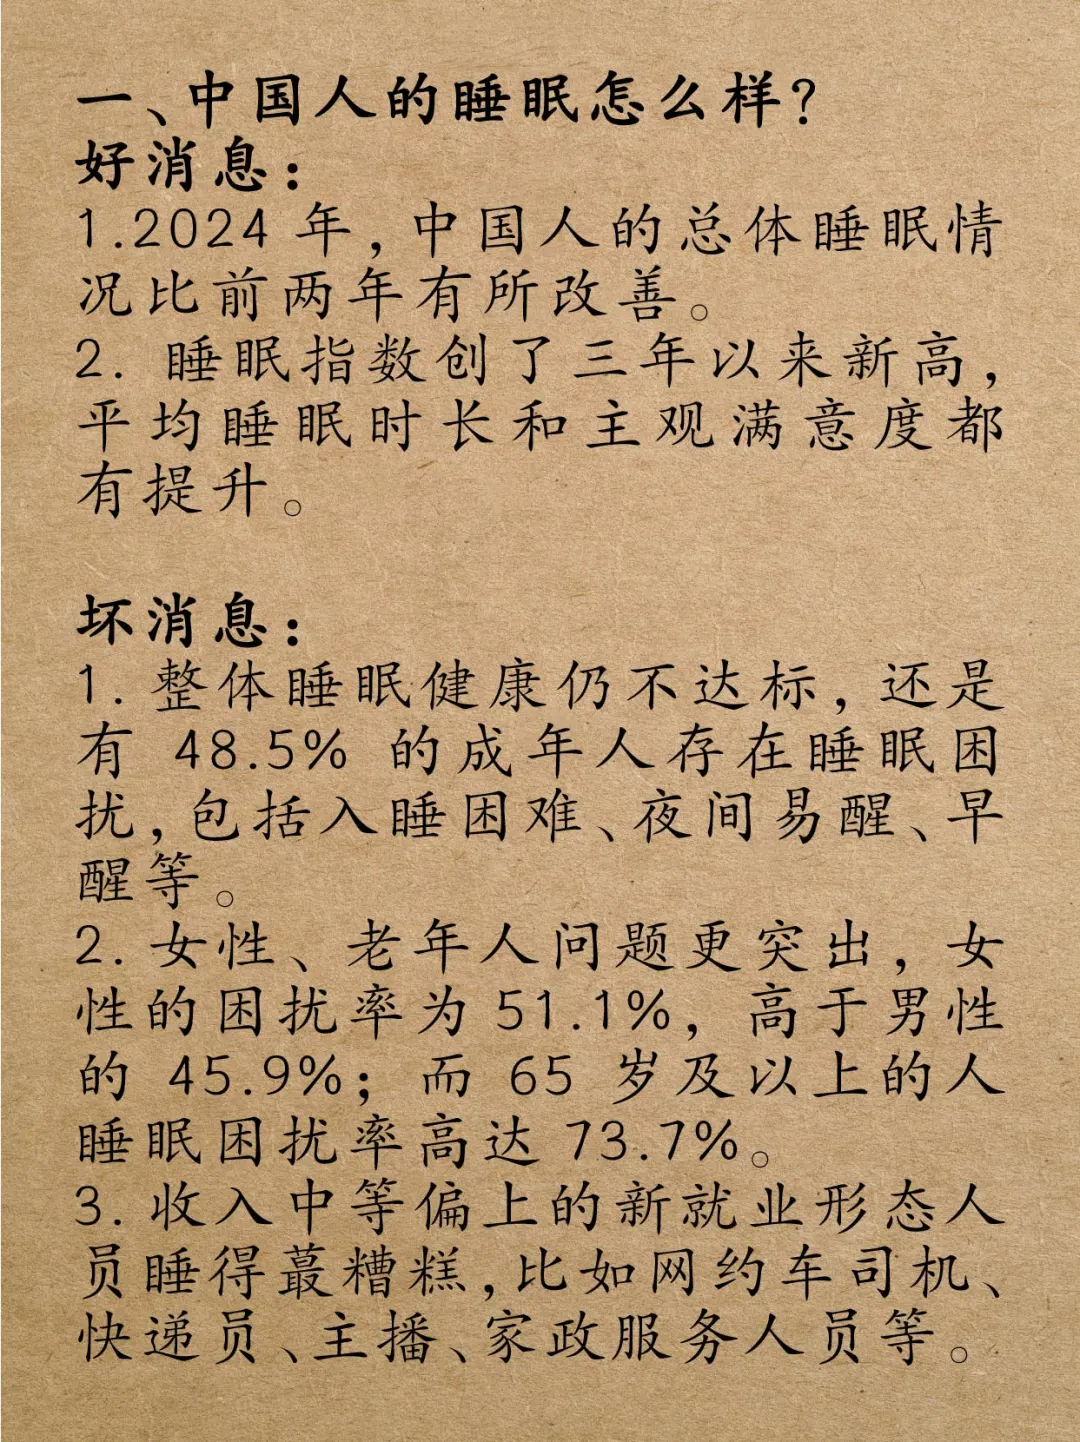 一、中国人的睡眠怎么样?
好消息：
1.2024 年，中国人的总体睡眠情
况比前两年有所改善。
2. 睡眠指数创了三年以来新高，
平均睡眠时长和主观满意度都
有提升。
坏消息：
1. 整体睡眠健康仍不达标，还是
有 48.5% 的成年人存在睡眠困
扰，包括入睡困难、夜间易醒、早
醒等。
2. 女性、老年人问题更突出，女
性的困扰率为 51.1%，高于男性
的 45.9%；而 65 岁及以上的人
睡眠困扰率高达 73.7%。
3. 收入中等偏上的新就业形态人
员睡得蕞糟糕，比如网约车司机、
快递员、主播、家政服务人员等。